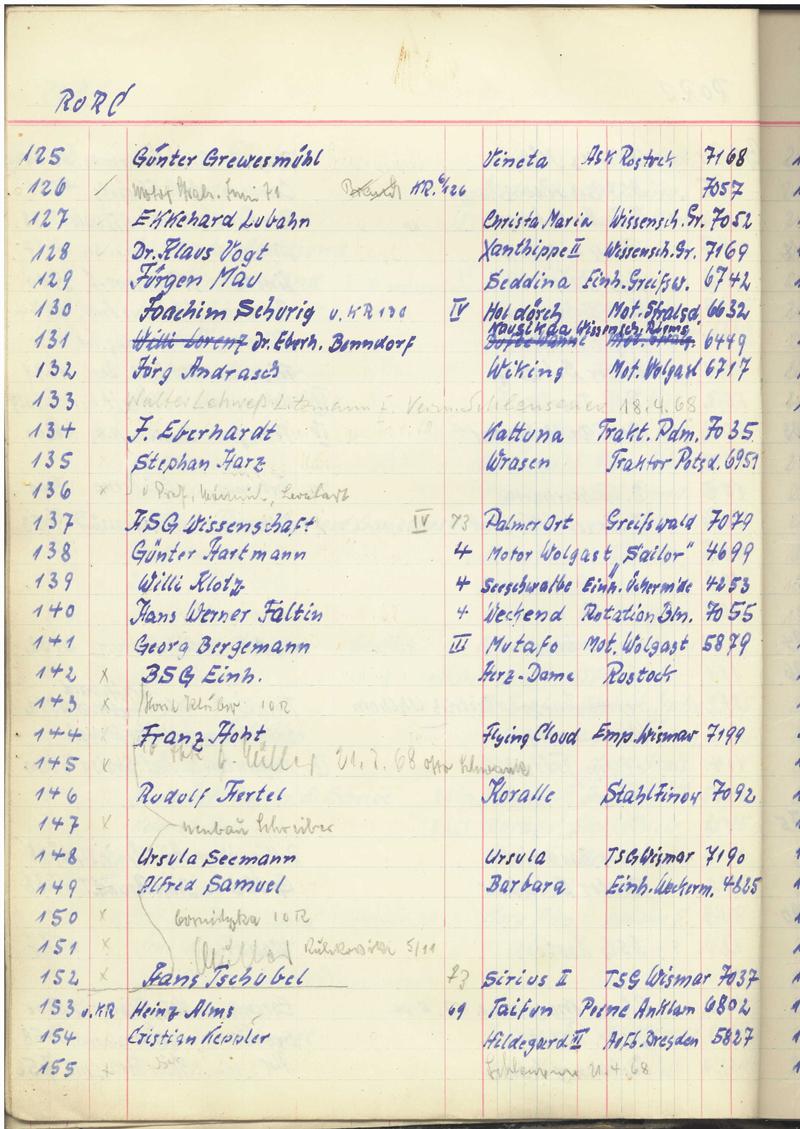 RORC
125 Günter Grewesmühl Vineta ASK Rostock 7168
126 / Motor Juni 71 KR. 6/126 7057
127 Ekkehard Lubahn Christa Maria Wissensch. Gr. 7052
128 Dr. Klaus Vogt Xanthippe II Wissensch. Gr. 7169
129 Jürgen Mau Seddina Einh. Greifsw. 6742
130 Joachim Schurig u. KR 130 IV Hol dörch Mot. Stralsd 6632
Nausikaa Wissensch.
131 Willi Lorenz Dr. Eberh. Benndorf 6449
132 Jörg Andrasch Wiking Mot. Wolgast 6717
133 Walter Lehweß Litzmann 18.4.68
134 F. Eberhardt Kattuna Trakt. Pdm. 7035
135 Stephan Harz Wrasen Traktor Potsd. 6951
136 x
137 HSG Wissenschaft IV 73 Palmer Ort Greifswald 7079
138 Günter Hartmann 4 Motor Wolgast „Sailor" 4699
139 Willi Klotz 4 Seeschwalbe Einh. Ückerm'de 4253
140 Hans Werner Faltin 4 Weekend Rotation Bln. 7055
141 Georg Bergemann III Mutafo Mot. Wolgast 5879
142 x BSG Einh. Herz-Dame Rostock
143 x Klüber 10R
144 x Franz Hoht Flying Cloud Emp. Wismar 7199
145 x Müller 21.2.68
146 Rudolf Hertel Koralle Stahl Finow 7092
147 x Neubau Schreiber
148 Ursula Seemann Ursula TSG Wismar 7190
149 Alfred Samuel Barbara Einh. Ueckerm. 4625
150 x 10R
151 x Müller 5/11
152 x Hans Tschubel 73 Sirius II TSG Wismar 7037
153 u. KR Heinz Alms 69 Taifun Peene Anklam 6802
154 Cristian Keppler Hildegard III Aufb. Dresden 5827
155 x 21.4.68